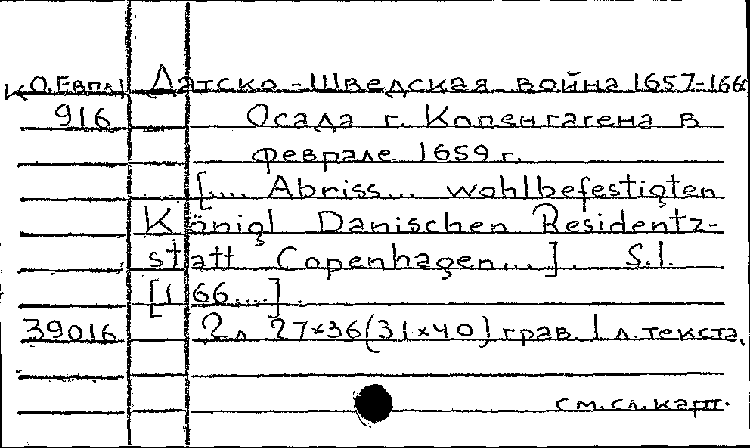 К О.Евпл Датско-Шведская война 1657-166
916 Осада г. Копенгагена в
феврале 1659 г.
[.... Abriss... wohlbefestigten
Königl Danischen Residentz-
statt Copenhagen....]. S.l.
[166....].
39016 2 л 27×36(31×40) грав. 1 л. текста.
см. сл. карт.